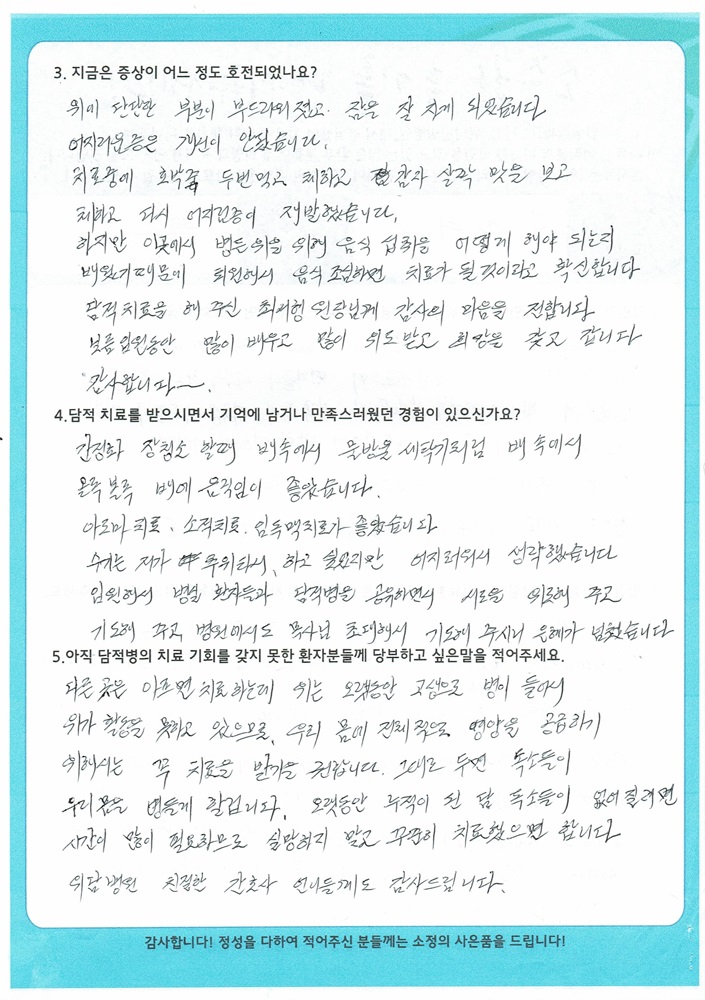 3. 지금은 증상이 어느 정도 호전되었나요?
위에 단단한 부분이 부드러워졌고 잠을 잘 자게 되었습니다
어지러운증은 개선이 안됐습니다.
치료중에 호박죽 두번먹고 체하고 감자 살짝 맛을 보고
체하고 다시 어지럼증이 재발했습니다.
하지만 이곳에서 병든위을 위해 음식 섭취을 어떻게 해야 되는지
배웠기때문에 퇴원해서 음식 조심하면 치료가 될것이라고 확신합니다
담적치료을 해 주신 최서형 원장님께 감사의 마음을 전합니다
보름입원동안 많이 배우고 많이 위로받고 희망을 갖고 갑니다
감사합니다~.
4.담적 치료를 받으시면서 기억에 남거나 만족스러웠던 경험이 있으신가요?
간정화 장청소 할때 배속에서 물방울 세탁기처럼 배 속에서
올록 볼록 배에 움직임이 좋았습니다.
아로마 치료, 소적치료. 임독맥치료가 좋았습니다
수기는 제가 추위타서, 하고 싶었지만 어지러워서 생략했습니다
입원해서 병실 환자들과 담적병을 공유하면서 서로을 위로해 주고
기도해 주고 병원에서도 목사님 초대해서 기도해 주시니 은혜가 넘쳤습니다
5.아직 담적병의 치료 기회를 갖지 못한 환자분들께 당부하고 싶은말을 적어주세요.
다른 곳은 아프면 치료하는데 위는 오랫동안 고생으로 병이 들어서
위가 활동을 못하고 있으므로, 우리 몸에 전체적으로 영양을 공급하기
위해서는 꼭 치료을 받기을 권합니다. 그대로 두면 독소들이
우리몸을 병들게 할겁니다. 오랫동안 누적이 된 담 독소들이 없어질려면
시간이 많이 필요하므로 실망하지 말고 꾸준히 치료했으면 합니다
위담병원 친절한 간호사 언니들께도 감사드립니다.
감사합니다! 정성을 다하여 적어주신 분들께는 소정의 사은품을 드립니다!